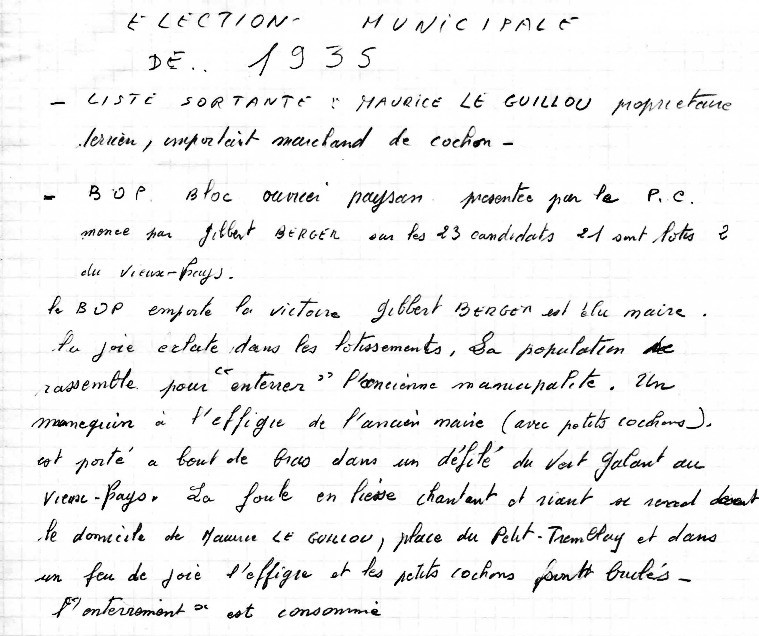 ELECTION - MUNICIPALE
DE.. 1935
- LISTE SORTANTE : MAURICE LE GUILLOU proprietaire
terrien, important marchand de cochon -
- BOP. Bloc ouvrier paysan presentee par le P.C.
menee par Gilbert BERGER sur les 23 candidats 21 sont lotis 2
du Vieux-Pays.
le BOP emporte la victoire Gilbert BERGER est élu maire.
la joie eclate dans les lotissements, La population se
rassemble pour "enterrer" l'ancienne municipalité. Un
mannequin à l'effigie de l'ancien maire (avec petits cochons).
est porté a bout de bras dans un défilé du Vert Galant au
Vieux-Pays. La foule en liesse chantant et riant se rend devant
le domicile de Maurice LE GUILLOU, place du Petit-Tremblay et dans
un feu de joie l'effigie et les petits cochons sont brulés -
l'"enterrement" est consommé